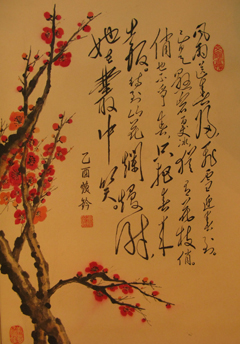 風雨送春歸飛雪迎春到
已是懸崖百丈冰猶有花枝俏
俏也不争春只把春来
報待到山花爛漫時
她在叢中笑
乙酉